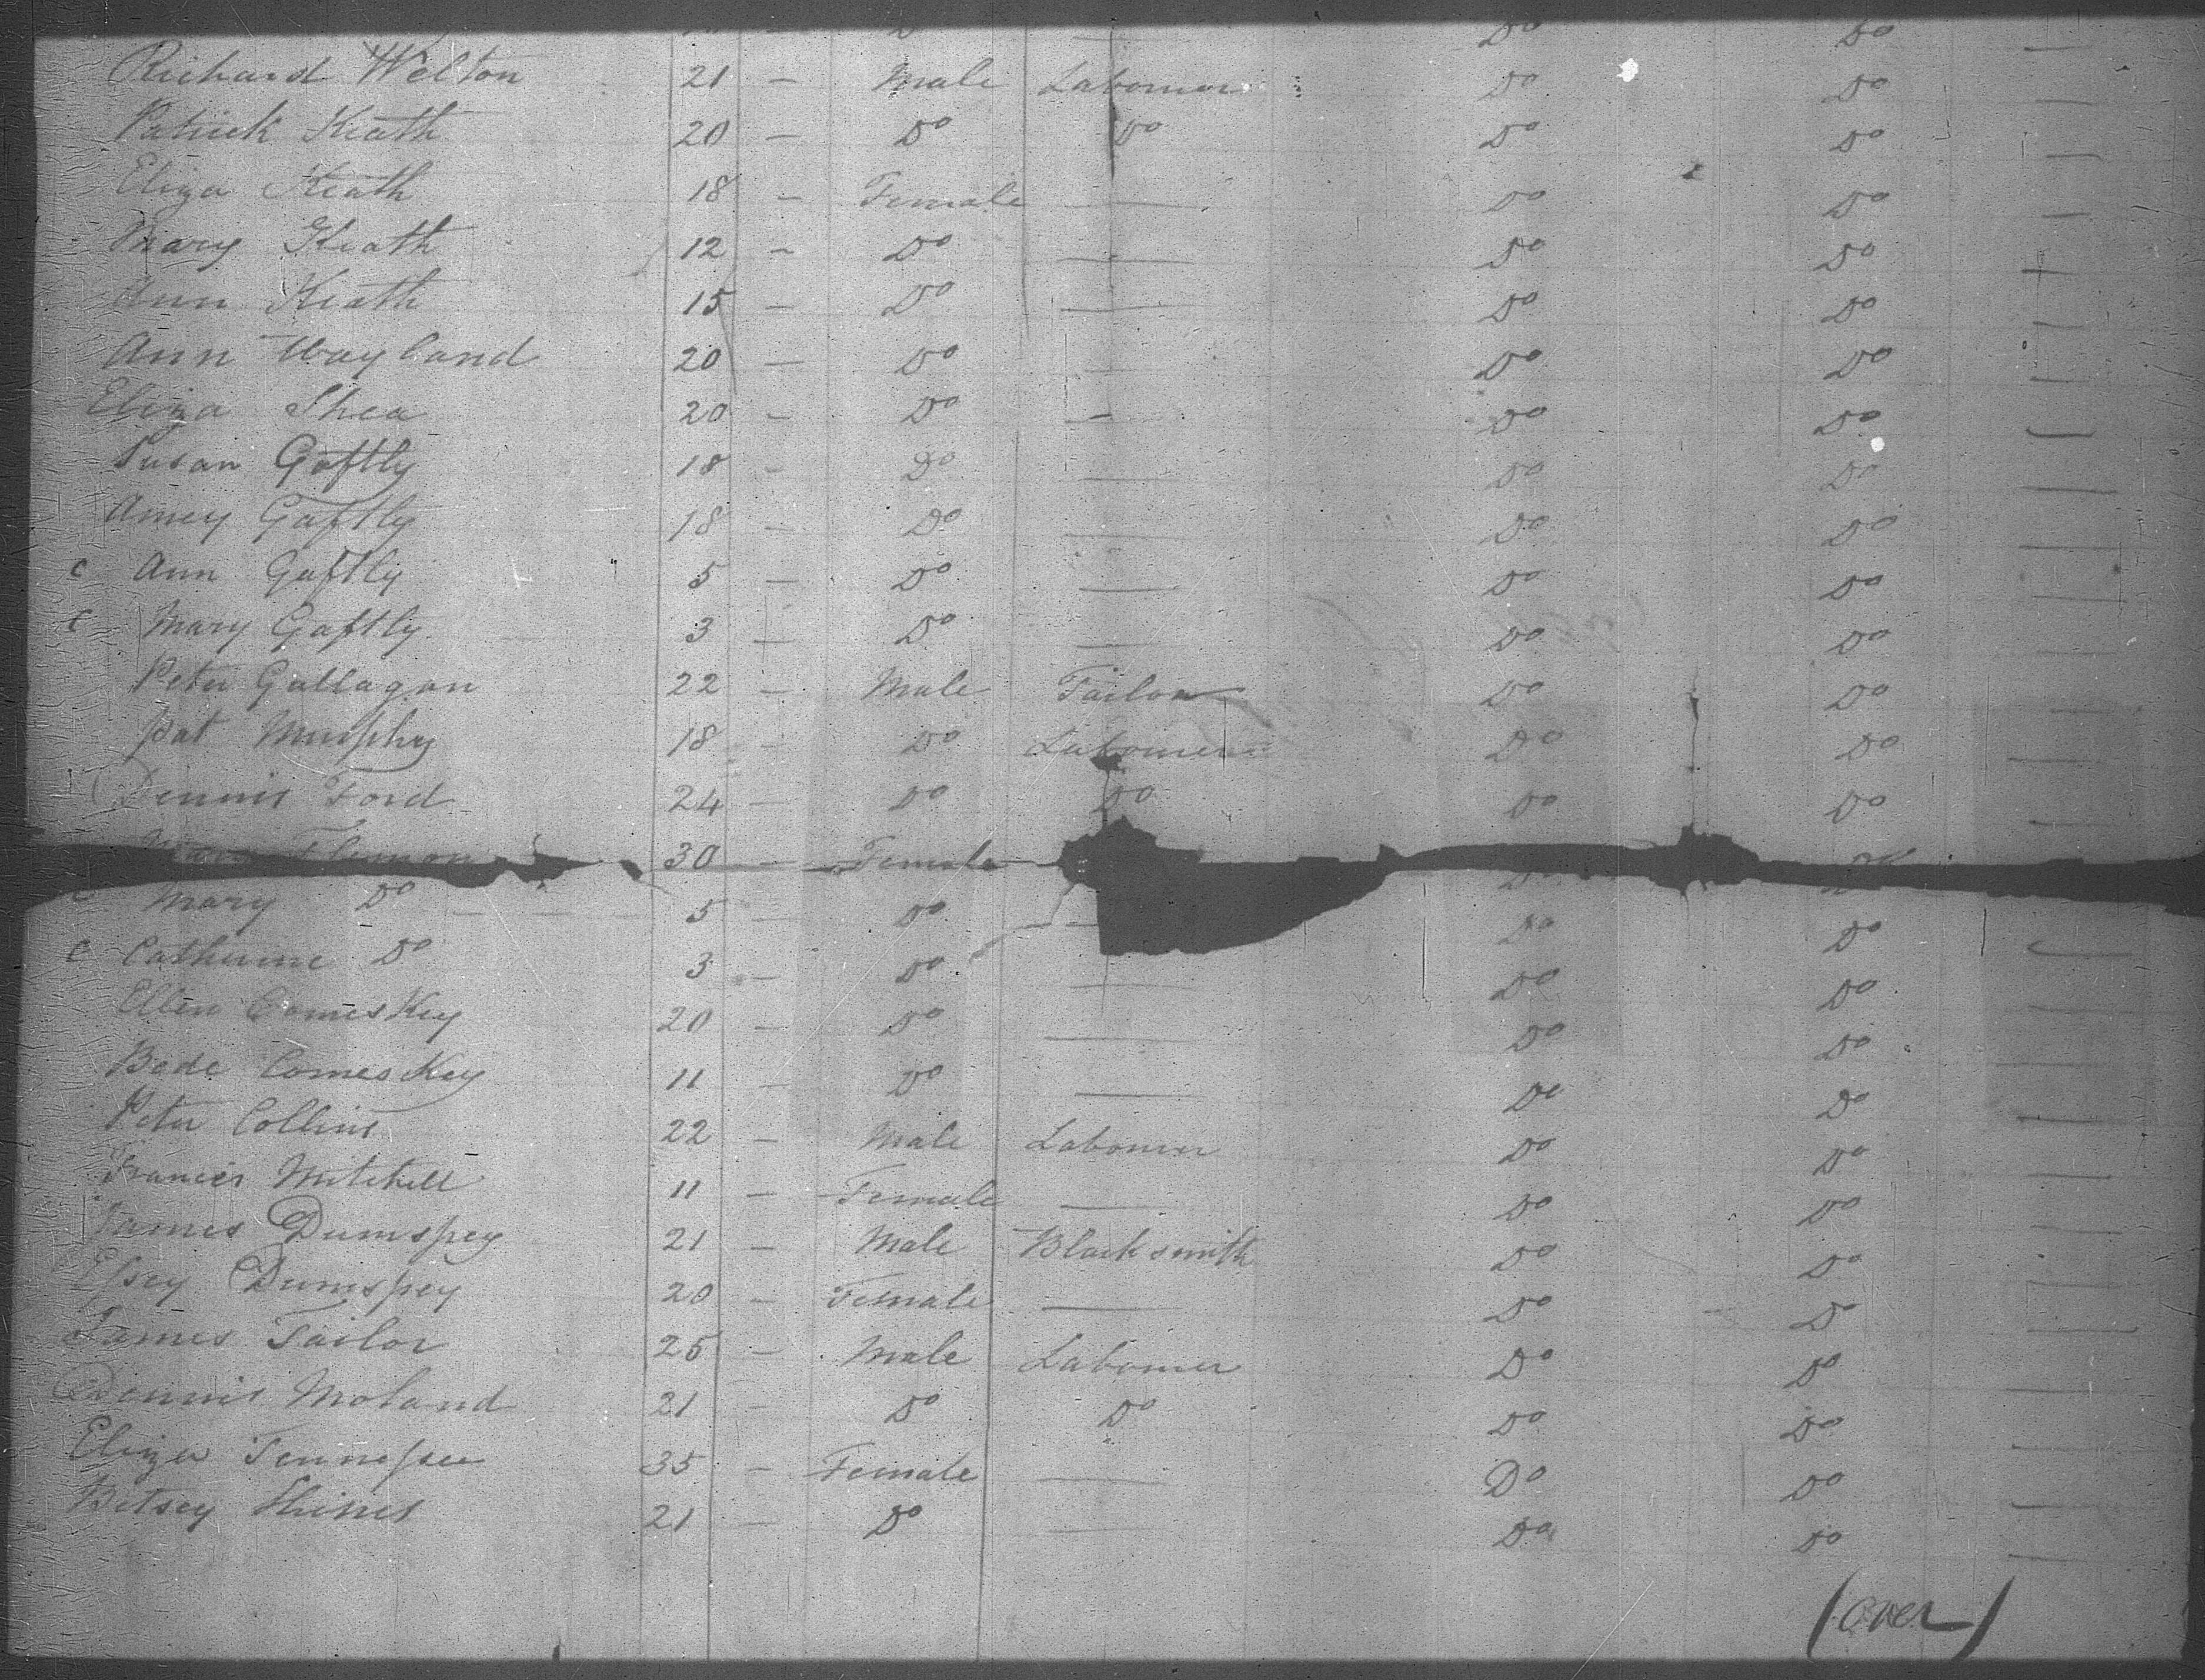 Do Do —
Richard Welton 21 — Male Labourer Do Do —
Patrick Keath 20 — Do Do Do Do —
Eliza Keath 18 — Female — Do Do —
Mary Keath 12 — Do — Do Do —
Ann Keath 15 — Do — Do Do —
Ann Wayland 20 — Do — Do Do —
Eliza Shea 20 — Do — Do Do —
Susan Gaftly 18 — Do — Do Do —
Amey Gaftly 18 — Do — Do Do —
c Ann Gaftly 5 — Do — Do Do —
c Mary Gaftly 3 — Do — Do Do —
Peter Gallagan 22 — Male Tailor Do Do —
Pat Murphy 18 — Do Labourer Do Do —
Dennis Ford 24 — Do Do Do Do —
30 — Female
c Mary Do 5 — Do — Do Do —
c Catherine Do 3 — Do — Do Do —
Ellen Comeskey 20 — Do — Do Do —
Bede Comeskey 11 — Do — Do Do —
Peter Collins 22 — Male Labourer Do Do —
Francis Mitchell 11 — Female — Do Do —
James Dumspey 21 — Male Blacksmith Do Do —
Essey Dumspey 20 — Female — Do Do —
James Tailor 25 — Male Labourer Do Do —
Dennis Moland 21 — Do Do Do Do —
Eliza Tennessee 35 — Female — Do Do —
Betsey Hines 21 — Do — Do Do —
(over)